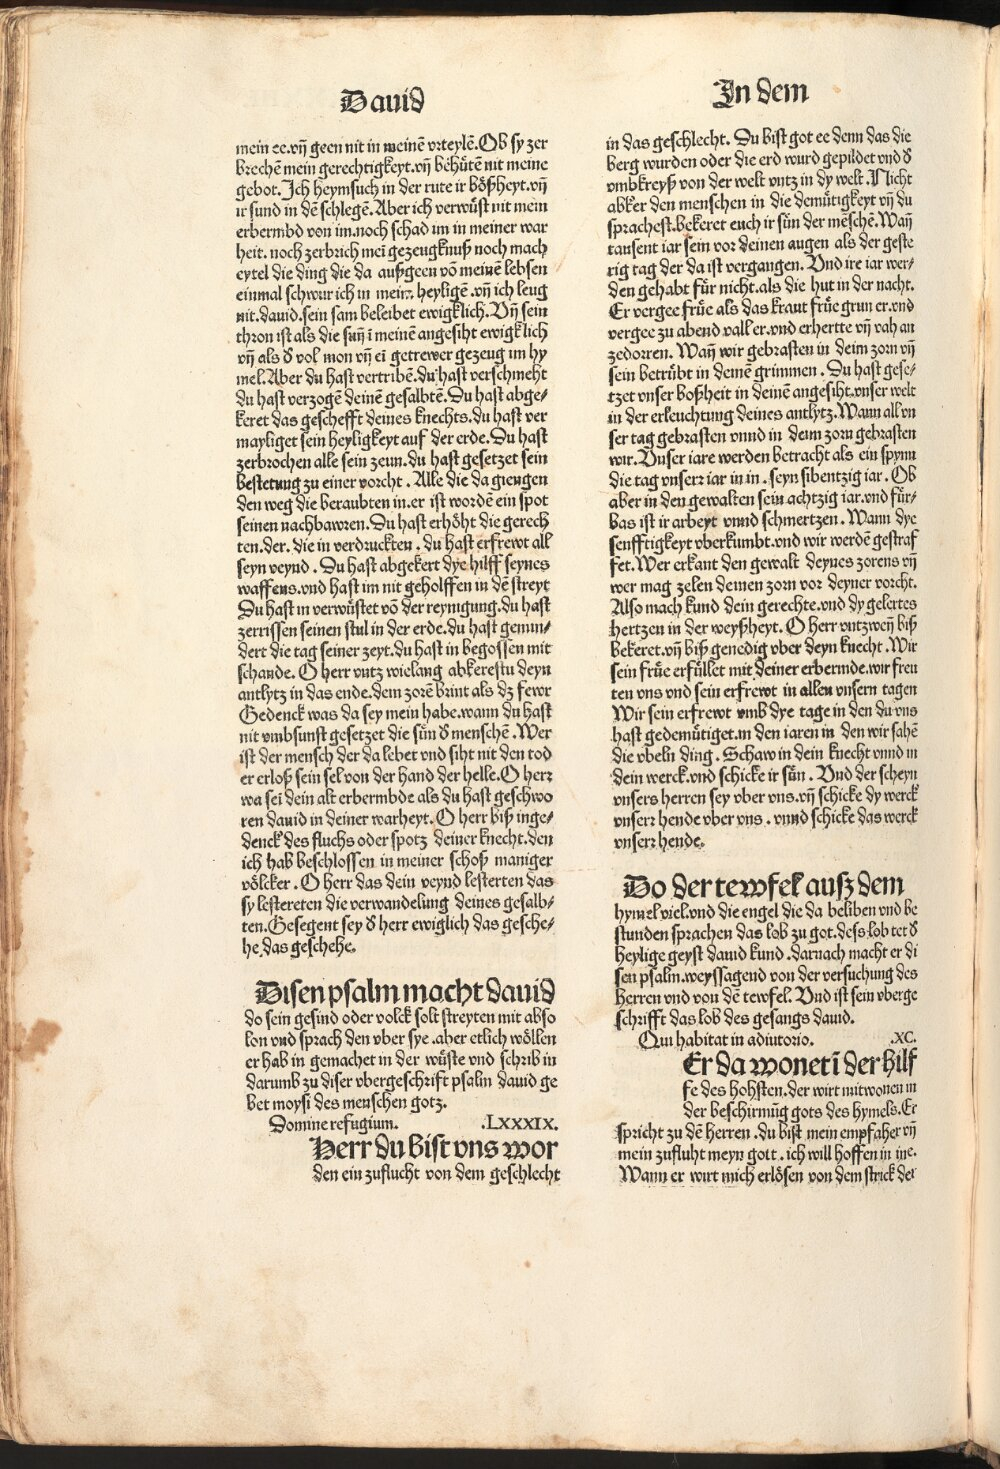 Dauid
mein ee.vñ geen nit in meinē vrteylē.Ob sy zer
brechē mein gerechtigkeyt.vñ behütē nit meine
gebot.Ich heymsuch in der rute ir bößheyt.vñ
ir sund in dē schlegē.Aber ich verwüst nit mein
erbermbd von im.noch schad im in meiner war
heit.noch zerbrich mei gezeugknuß noch mach
eytel die ding die da außgeen vō meinē lebsen
einmal schwur ich in meinē heyligē.vñ ich leug
nit.dauid.sein sam beleibet ewigklich.Vñ sein
thron ist als die suñ ī meinē angesiht ewigklich
vñ als d vol mon vñ eī getrewer gezeug im hy
mel.Aber du hast vertribē.du hast verschmeht
du hast verzogē deinē gesalbtē.Du hast abge-
keret das gescheft deines knechts.du hast ver
mayliget sein heyligkeyt auf der erde.Du hast
zerbrochen alle sein zeun.du hast gesetzet sein
bestetung zu einer vorcht.Alle die da giengen
den weg die beraubten in.er ist wordē ein spot
seinen nachbawren.Du hast erhöht die gerech
ten.der.die in verdruckten.du hast erfrewt all
seyn veynd.Du hast abgekert dye hilff seynes
waffens.vnd hast im nit geholffen in dē streyt
Du hast in verwüstet vō der reynigung.du hast
zerrissen seinen stul in der erde.du hast gemin-
dert die tag seiner zeyt.du hast in begossen mit
schande.O herr vntz wielang abkerestu deyn
antlytz in das ende.dem zorē brint als dz fewr
Gedenck was da sey mein habe.wann du hast
nit vmbsunst gesetzet die sün d menschē.Wer
ist der mensch der da lebet vnd siht nit den tod
er erloß sein sel von der hand der helle.O herr
wa sei dein alt erbermbde als du hast geschwo
ren dauid in deiner warheyt.O herr biß inge-
denck des fluchs oder spotz deiner knecht.den
ich hab beschlossen in meiner schoß maniger
völcker.O herr das dein veynd lesterten das
sy lestereten die verwandelung deines gesalb-
ten.Gesegent sey d herr ewiglich das gesche-
he.das geschehe.
Disen psalm macht dauid
do sein gesind oder volck solt streyten mit abso
lon vnd sprach den vber sye.aber etlich wöllen
er hab in gemachet in der wüste vnd schrib in
darumb zu diser vbergeschrift psalm dauid ge
bet moysi des menschen gotz.
Domine refugium. .LXXXIX.
Herr du bist vns wor
den ein zuflucht von dem geschlecht
In dem
in das geschlecht. Du bist got ee denn das die
berg wurden oder die erd wurd gepildet vnd d
vmbkreyß von der welt vntz in dy welt.Nicht
abker den menschen in die demütigkeyt vñ du
sprachest.bekeret euch ir sün der mēschē.Wañ
tausent iar sein vor deinen augen als der geste
rig tag der da ist vergangen.Vnd ire iar wer-
den gehabt für nicht.als die hut in der nacht.
Er vergee früe als das kraut früe grun er.vnd
vergee zu abend vall er.vnd erhertte vñ vah an
zedorren.Wañ wir gebrasten in deim zorn vñ
sein betrübt in deinē grimmen.Du hast gese-
tzet vnser boßheit in deinē angesiht.vnser welt
in der erleuchtung deines antlytz.Wann all vn
ser tag gebrasten vnnd in deim zorn gebrasten
wir.Vnser iare werden betracht als ein spynn
die tag vnserr iar in in.seyn sibentzig iar.Ob
aber in den gewalten sein achtzig iar.vnd für-
bas ist ir arbeyt vnnd schmertzen.Wann dye
senfftigkeyt vberkumbt.vnd wir werdē gestraf
fet.Wer erkant den gewalt deynes zorens vñ
wer mag zelen deinen zorn vor deyner vorcht.
Also mach kund dein gerechte.vnd dy gelertes
hertzen in der weyßheyt.O herr vntzweñ biß
bekeret.vñ biß genedig vber deyn knecht.Wir
sein früe erfüllet mit deiner erbermde.wir freu
ten vns vnd sein erfrewt in allen vnsern tagen
Wir sein erfrewt vmb dye tage in den du vns
hast gedemütiget.in den iaren in den wir sahē
die vbeln ding.Schaw in dein knecht vnnd in
dein werck.vnd schicke ir sün.Vnd der scheyn
vnsers herren sey vber vns.vñ schicke dy werck
vnserr hende vber vns.vnnd schicke das werck
vnserr hende.
Do der tewfel außz dem
hymel viel.vnd die engel die da beliben vnd be
stunden sprachen das lob zu got.dess lob tet d
heylige geyst dauid kund.darnach macht er di
sen psalm.weyssagend von der versuchung des
herren vnd von dē tewfel.Vnd ist sein vberge
schrifft das lob des gesangs dauid.
Qui habitat in adiutorio. .XC.
Er da wonet ī der hilf
fe des hohsten.der wirt mitwonen in
der beschirmūg gots des hymels.Er
spricht zu dē herren.du bist mein empfaher vñ
mein zufluht meyn gott.ich will hoffen in ine.
Wann er wirt mich erlösen von dem strick der